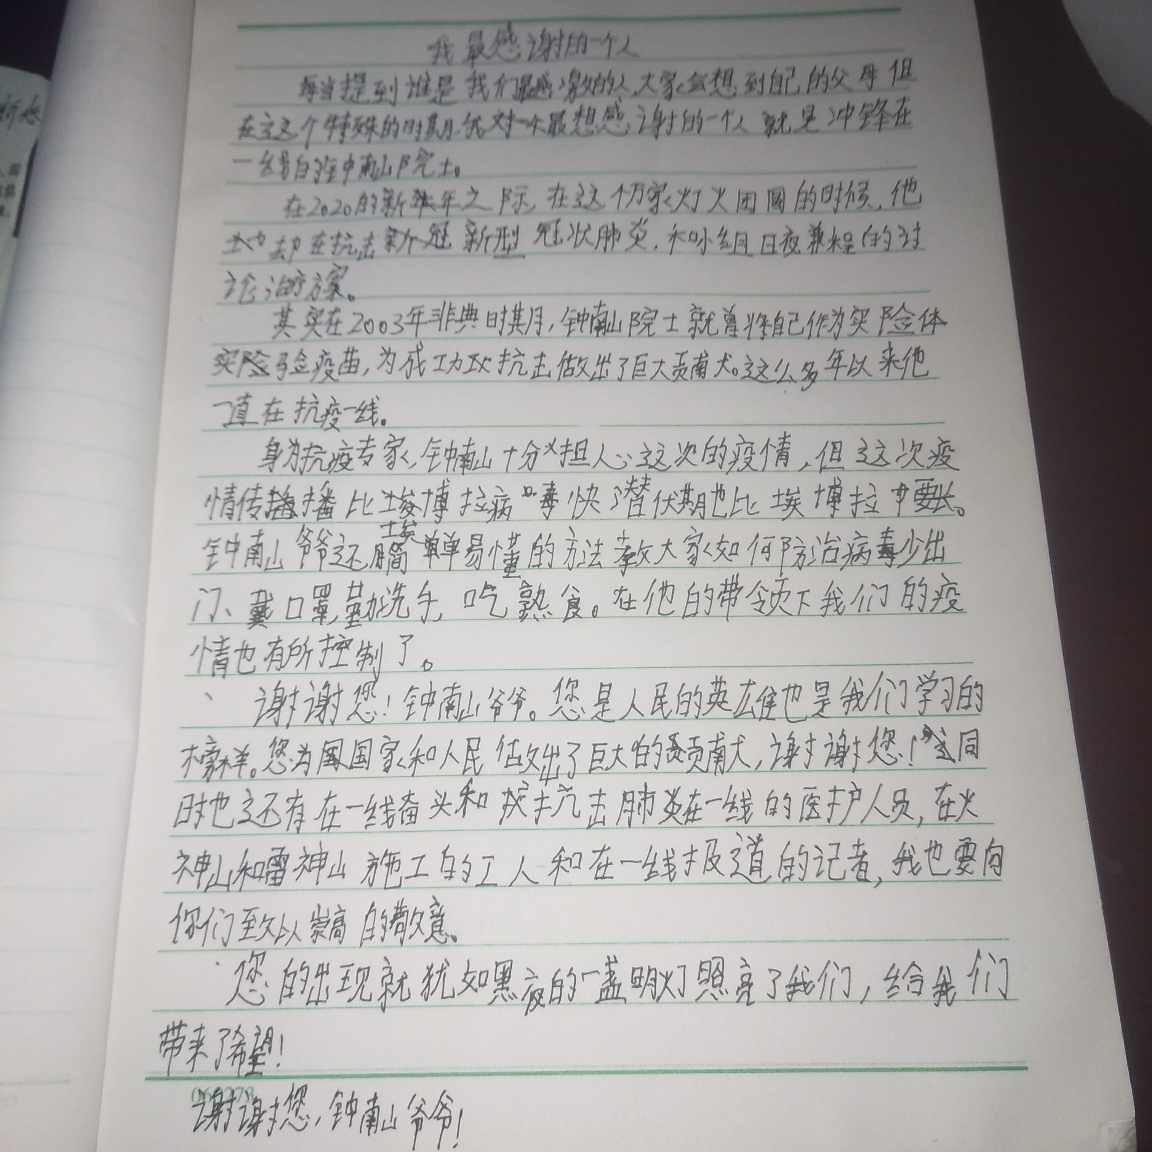 我最感谢的一个人
每当提到谁是我们最感激的人大家会想到自己的父母但
在这个特殊的时期.我对最想感谢的一个人就是冲锋在
一线的钟南山院士。
在2020的新年之际,在这个万家灯火团圆的时候,他
却在抗击新冠新型冠状肺炎.和小组日夜兼程的讨
论治疗方案。
其实在2003年非典时期,钟南山院士就曾将自己作为实险体
实险疫苗,为成功抗击做出了巨大贡南犬。这么多年以来他
一直在抗疫一线。
身为抗疫专家,钟南山十分担心这次的疫情,但这次疫
情传播比埃博拉病毒快了潜伏期也比埃博拉要长。
钟南山爷爷还用简单易懂的方法教大家如何防治病毒少出
门、戴口罩,勤洗手,吃熟食。在他的带领下我们的疫
情也有所控制了。
谢谢您!钟南山爷爷。您是人民的英雄也是我们学习的
榜样。您为国家和人民做出了巨大的贡献,谢谢您!同
时也还有在一线奋斗和抗击肺炎在一线的医护人员,在火
神山和雷神山施工的工人和在一线报道的记者,我也要向
你们致以崇高的敬意。
您的出现就犹如黑夜的一盏明灯照亮了我们,给我们
带来了希望!
谢谢您,钟南山爷爷!